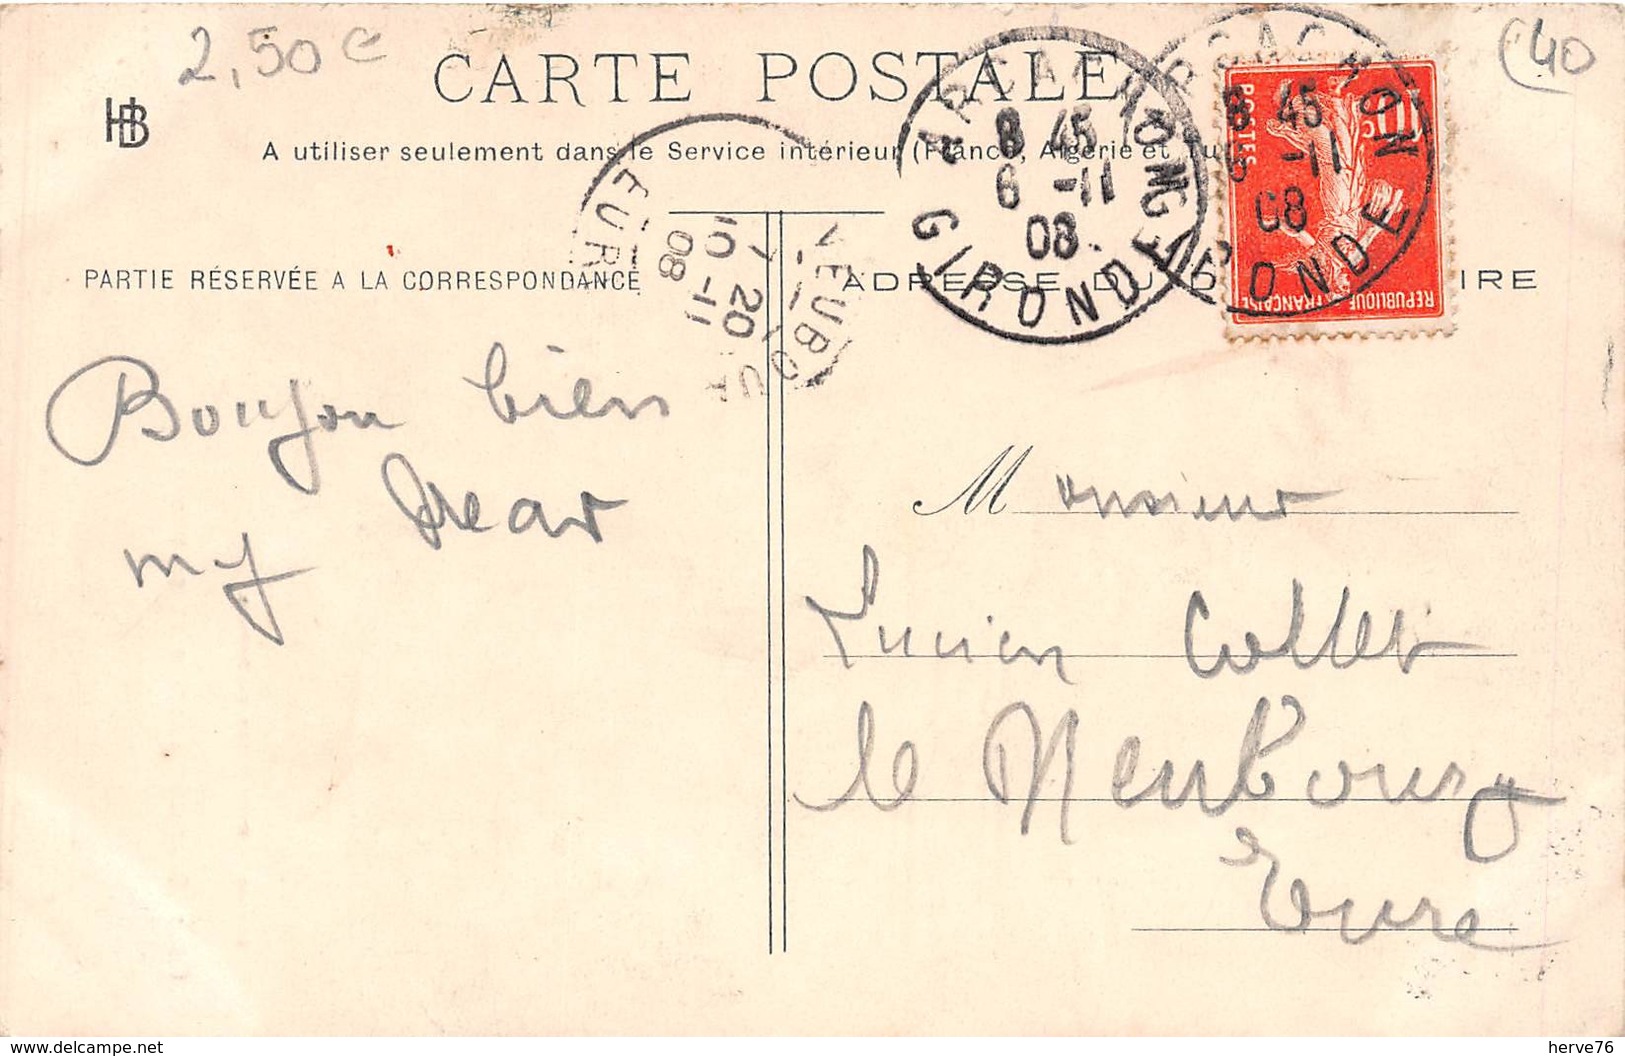 2,50 €
(40
HB
CARTE POSTALE
A utiliser seulement dans le Service intérieur (France, Algérie et Tu
ARCACHON
8 45
6 -11
08
GIRONDE
ARCACHON
8 45
6 -11
08
GIRONDE
10 c
POSTES
REPUBLIQUE FRANÇAISE
LE NEUBOUR
7 20
10 -11
08
EURE
PARTIE RÉSERVÉE A LA CORRESPONDANCE
ADRESSE DU D IRE
Boujou bien
my Drear
Monsieur
Lucien Collet
le Neubourg
Eure
delcampe.net
herve76